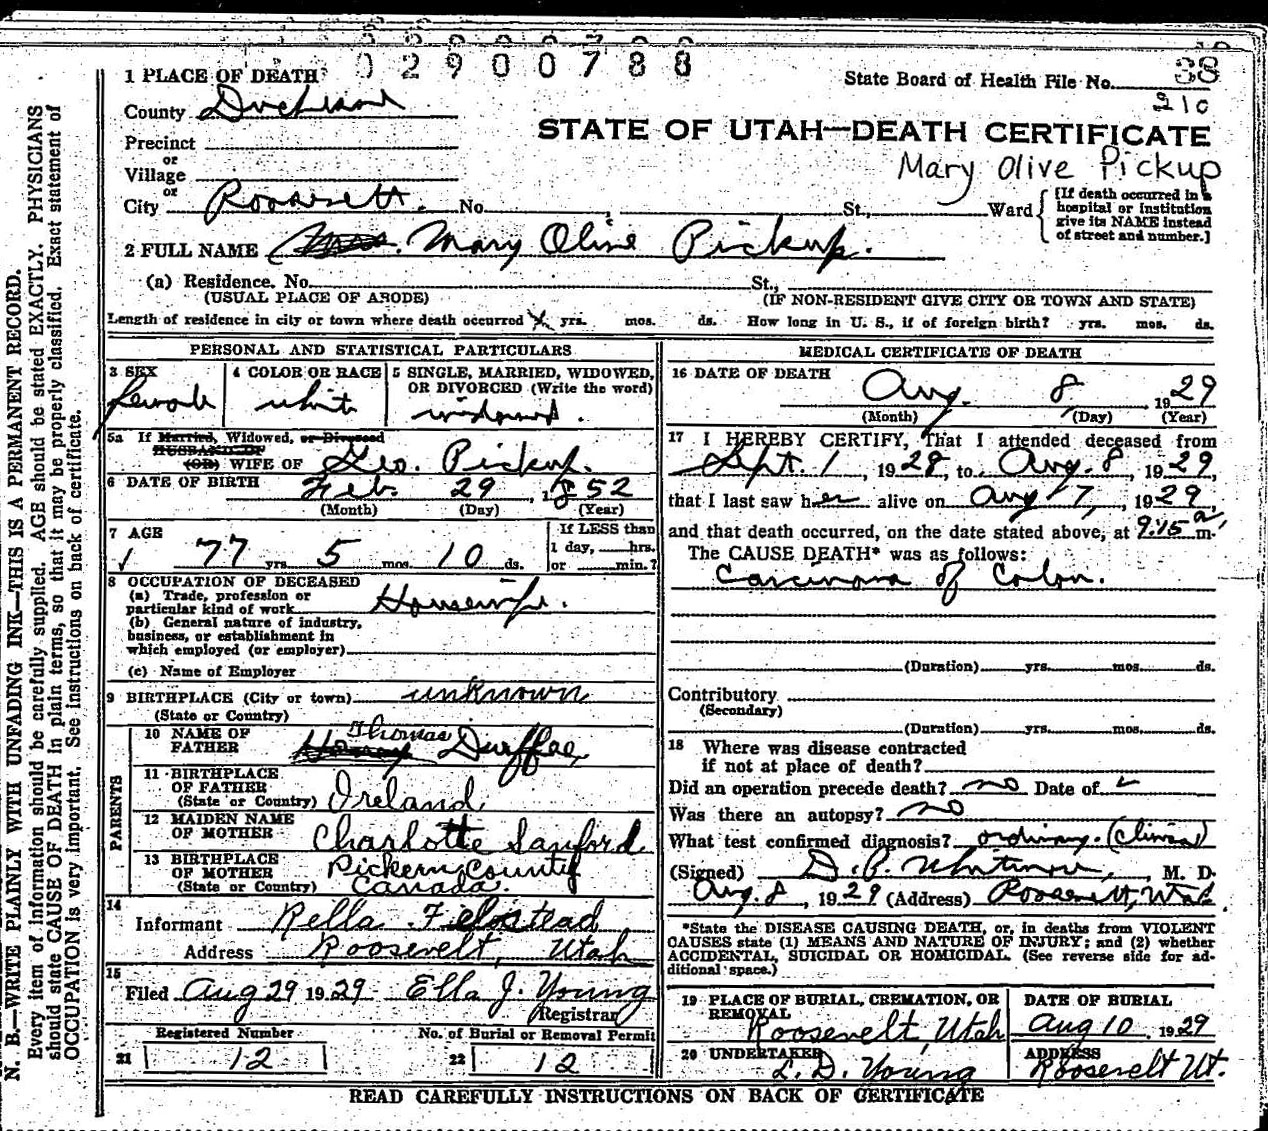 0290 0788
1 PLACE OF DEATH
State Board of Health File No. 38
County Duchesne
210
STATE OF UTAH—DEATH CERTIFICATE
Precinct
or
Mary Olive Pickup
Village
or
City Roosevelt. No. , St., Ward
[If death occurred in a
hospital or institution
give its NAME instead
of street and number.]
2 FULL NAME Mrs. Mary Olive Pickup.
(a) Residence. No. St.,
(USUAL PLACE OF ABODE) (IF NON-RESIDENT GIVE CITY OR TOWN AND STATE)
Length of residence in city or town where death occurred yrs. mos. ds. How long in U. S., if of foreign birth? yrs. mos. ds.
PERSONAL AND STATISTICAL PARTICULARS
3 SEX
female
4 COLOR OR RACE
white
5 SINGLE, MARRIED, WIDOWED,
OR DIVORCED (Write the word)
widowed.
5a If Married, Widowed, or Divorced
HUSBAND OF
(OR) WIFE OF Geo. Pickup.
6 DATE OF BIRTH Feb. 29, 1852
(Month) (Day) (Year)
7 AGE
77 yrs. 5 mos. 10 ds.
If LESS than
1 day, hrs.
or min.?
8 OCCUPATION OF DECEASED
(a) Trade, profession or
particular kind of work Housewife.
(b) General nature of industry,
business, or establishment in
which employed (or employer)
(c) Name of Employer
9 BIRTHPLACE (City or town) unknown
(State or Country)
PARENTS
10 NAME OF
FATHER Thomas Durffee,
11 BIRTHPLACE
OF FATHER
(State or Country) Ireland
12 MAIDEN NAME
OF MOTHER Charlotte Sanford
13 BIRTHPLACE
OF MOTHER Pickern County
(State or Country) Canada.
14
Informant Rella Felstead
Address Roosevelt, Utah
15
Filed Aug 29 1929 Ella J. Young
Registrar
Registered Number No. of Burial or Removal Permit
21 12 22 12
MEDICAL CERTIFICATE OF DEATH
16 DATE OF DEATH
Aug. 8 1929
(Month) (Day) (Year)
17 I HEREBY CERTIFY, That I attended deceased from
Sept. 1, 1928, to Aug. 8, 1929,
that I last saw her alive on Aug 7, 1929,
and that death occurred, on the date stated above, at 9:15 a. m.
The CAUSE DEATH* was as follows:
Carcinoma of Colon.
(Duration) yrs. mos. ds.
Contributory
(Secondary)
(Duration) yrs. mos. ds.
18 Where was disease contracted
if not at place of death?
Did an operation precede death? no Date of
Was there an autopsy? no
What test confirmed diagnosis? ordinary. (Clinical)
(Signed) D. P. Whitmore, M. D.
Aug. 8, 1929 (Address) Roosevelt, Utah.
*State the DISEASE CAUSING DEATH, or, in deaths from VIOLENT
CAUSES state (1) MEANS AND NATURE OF INJURY; and (2) whether
ACCIDENTAL, SUICIDAL OR HOMICIDAL. (See reverse side for ad-
ditional space.)
19 PLACE OF BURIAL, CREMATION, OR
REMOVAL
Roosevelt, Utah
DATE OF BURIAL
Aug 10 1929
20 UNDERTAKER
L. D. Young
ADDRESS
Roosevelt Ut.
READ CAREFULLY INSTRUCTIONS ON BACK OF CERTIFICATE
N. B.—WRITE PLAINLY WITH UNFADING INK—THIS IS A PERMANENT RECORD.
Every item of information should be carefully supplied. AGE should be stated EXACTLY. PHYSICIANS
should state CAUSE OF DEATH in plain terms, so that it may be properly classified. Exact statement of
OCCUPATION is very important. See instructions on back of certificate.